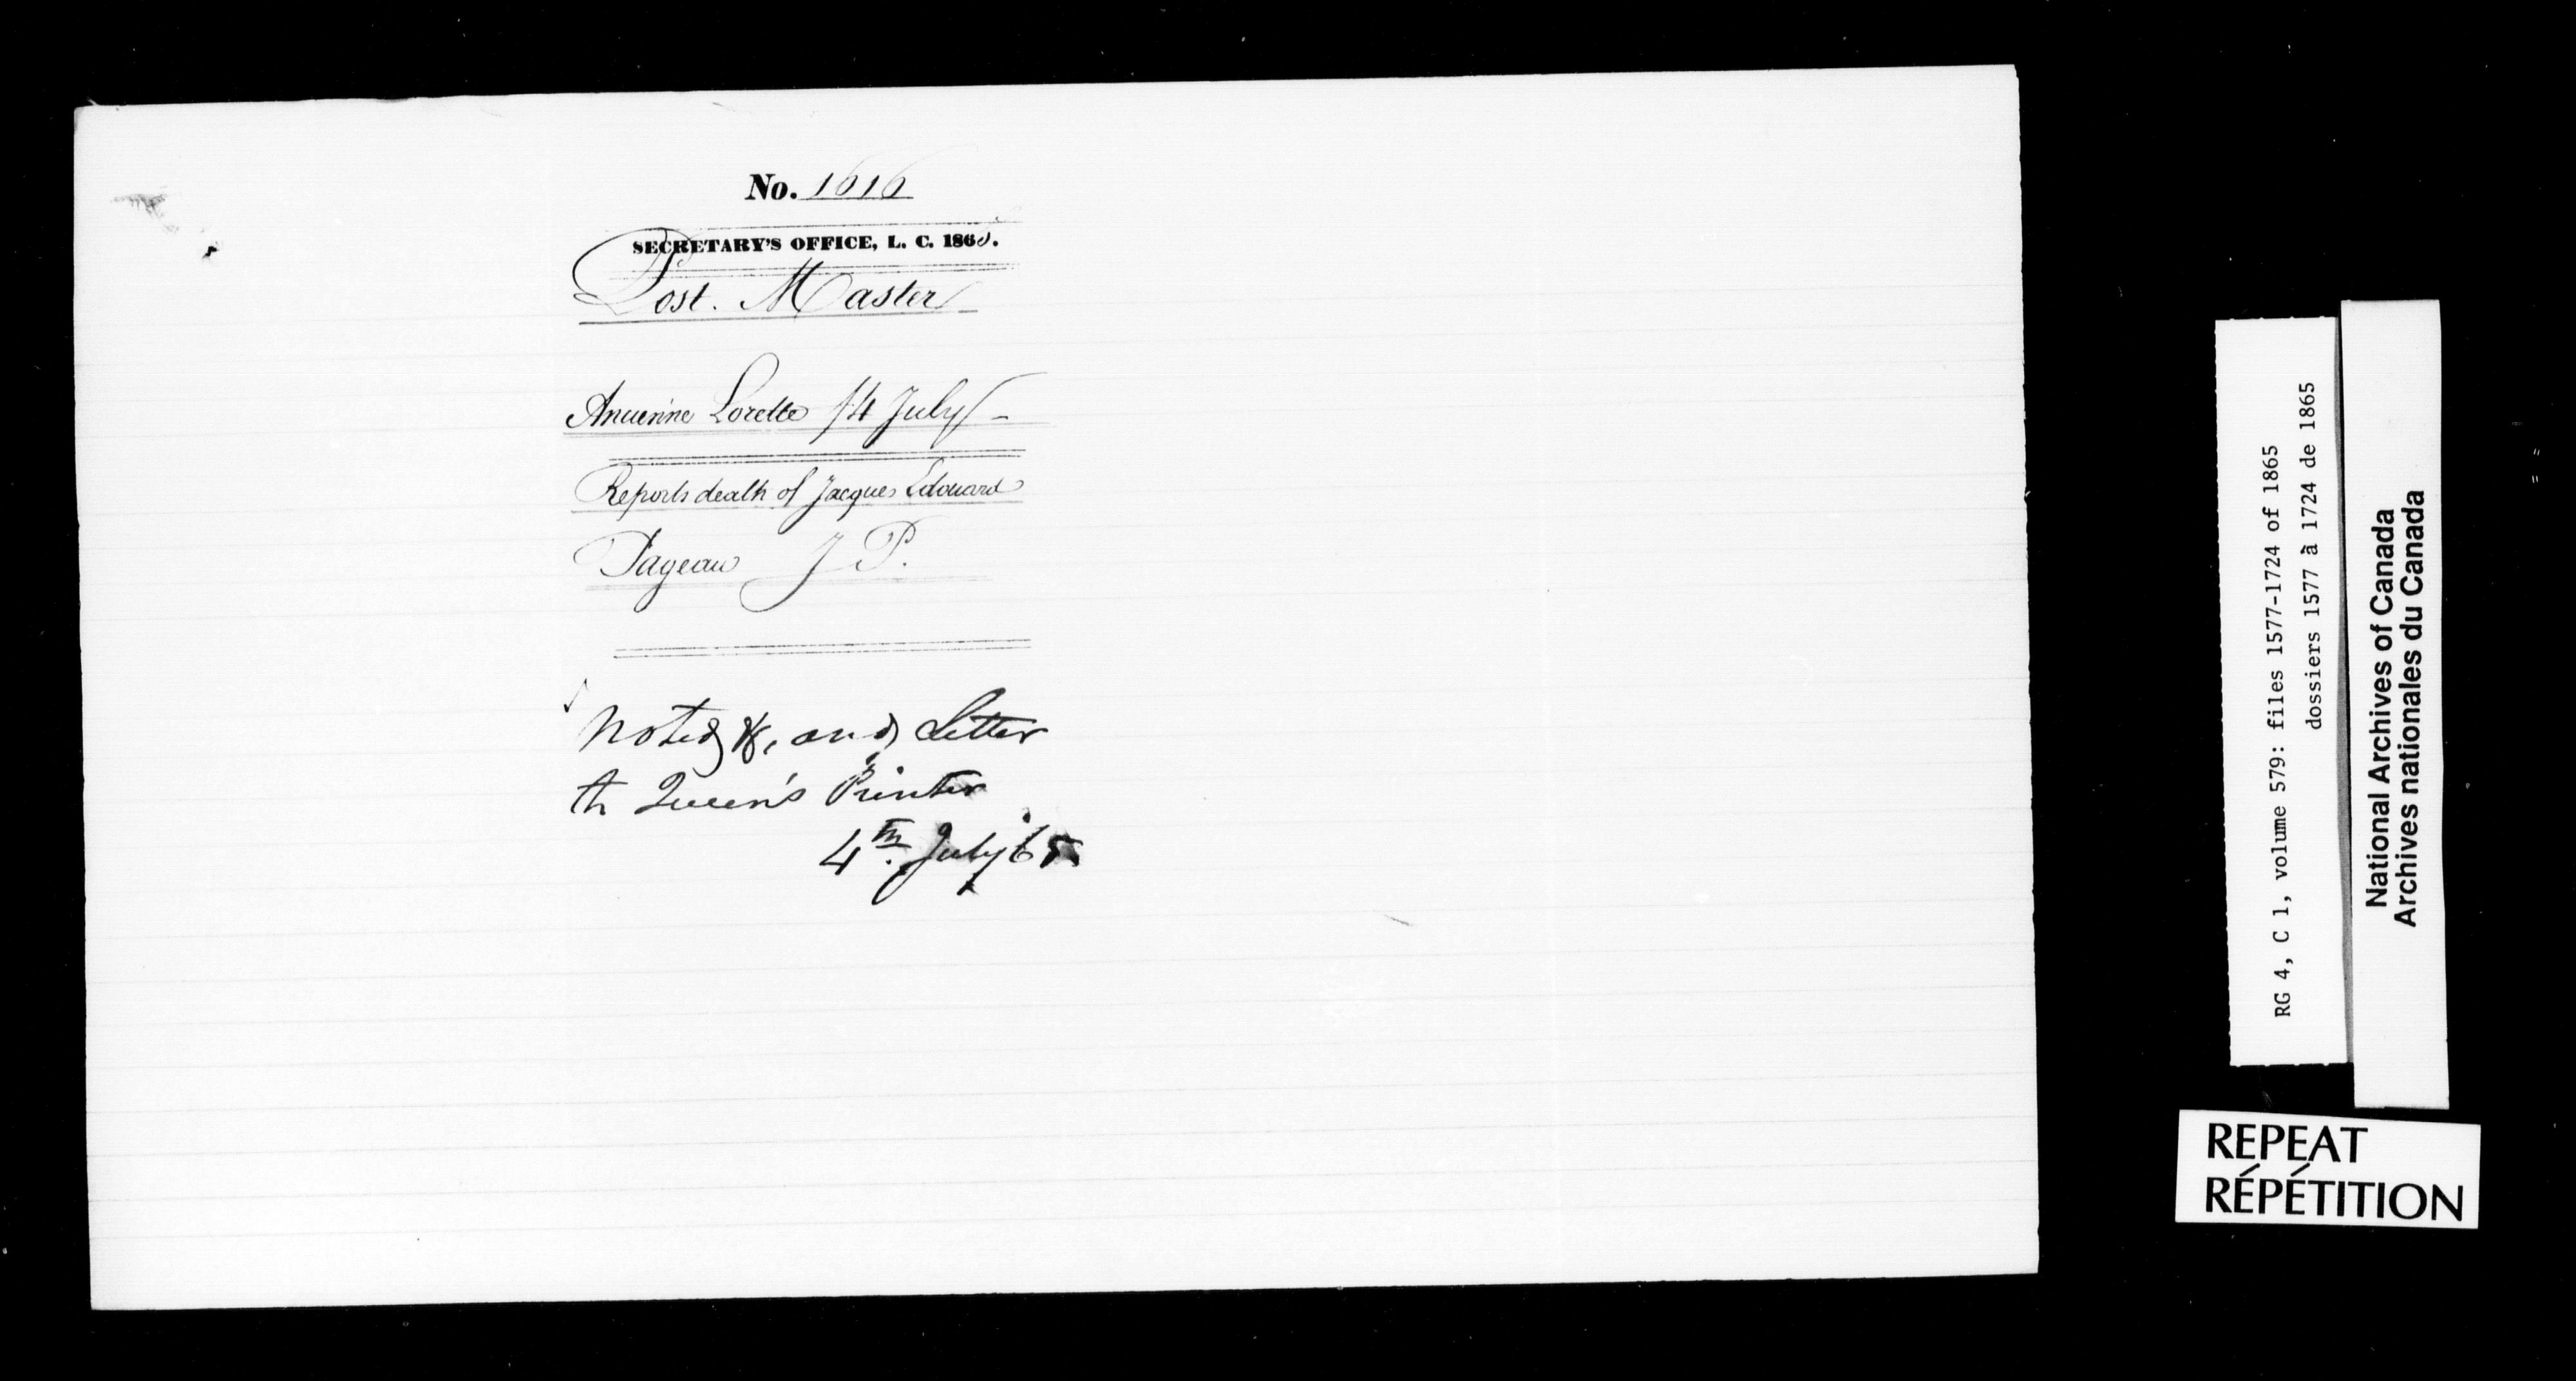 No. 1616
SECRETARY'S OFFICE, L. C. 1865.
Post. Master
Ancienne Lorette 14 July
Reports death of Jacques Edouard
Pageau J P.
Noted &c, and letter
to Queen's Printer
4th. July 65
RG 4, C 1, volume 579: files 1577-1724 of 1865
dossiers 1577 à 1724 de 1865
National Archives of Canada
Archives nationales du Canada
REPEAT
RÉPÉTITION